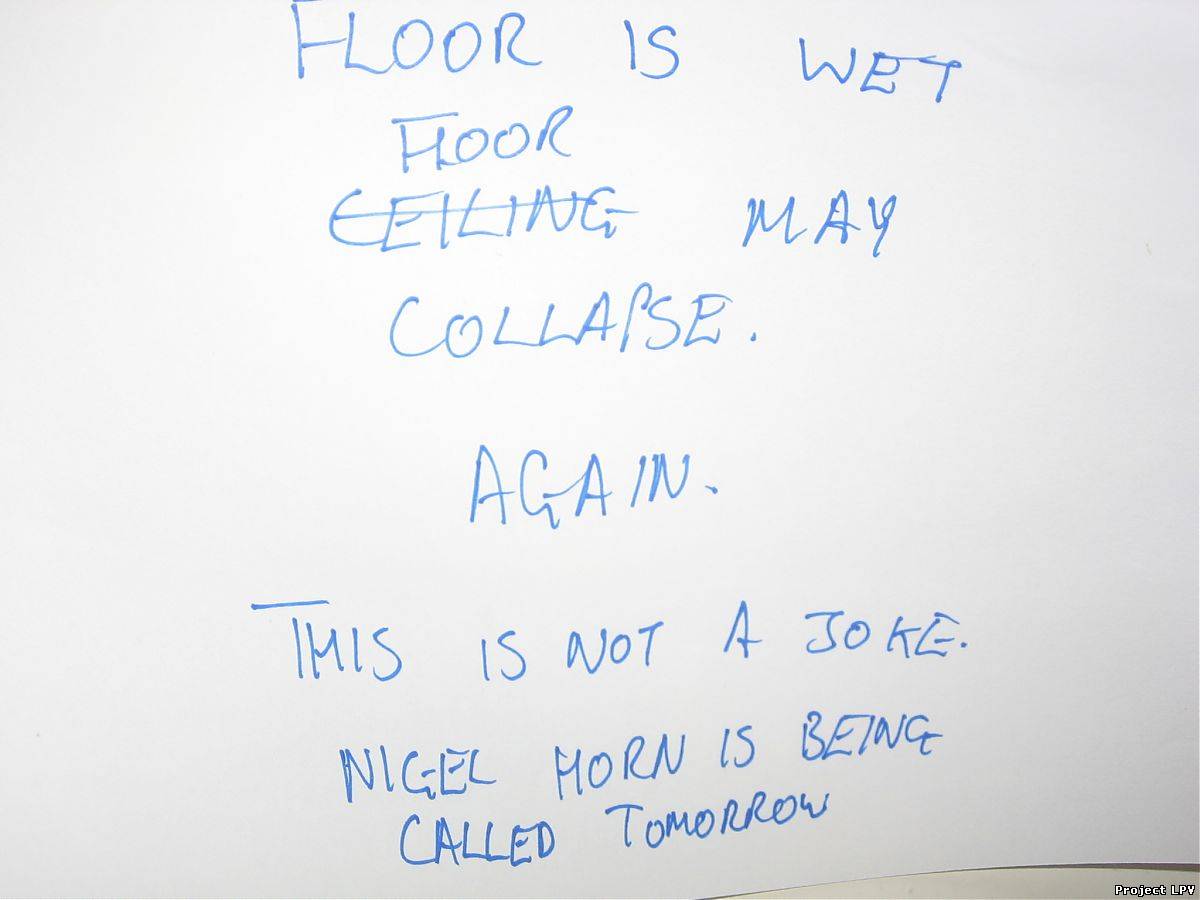 FLOOR IS WET
FLOOR
CEILING MAY
COLLAPSE.
AGAIN.
THIS IS NOT A JOKE.
NIGEL HORN IS BEING
CALLED TOMORROW
Project LPV